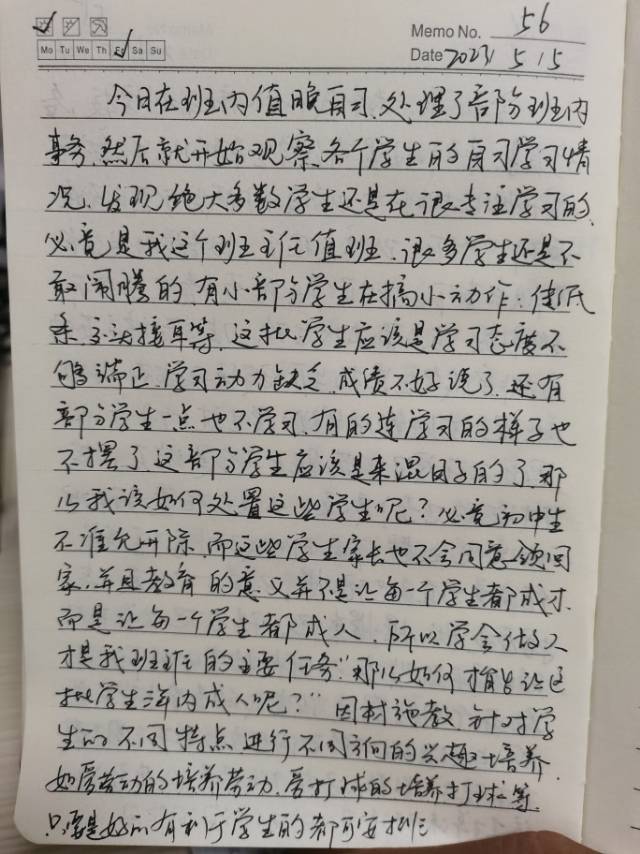 Memo No. 56
Mo Tu We Th Fr Sa Su
Date 2023/5/5
今日在班内值晚自习,处理了部分班内
事务,然后就开始观察各个学生的自习学习情
况,发现绝大多数学生还是在很专注学习的,
必竟是我这个班主任值班,很多学生还是不
敢闹腾的,有小部分学生在搞小动作:传纸
条、交头接耳等,这批学生应该是学习态度不
够端正,学习动力缺乏,成绩不好说了,还有
部分学生一点也不学习,有的连学习的样子也
不摆了,这部分学生应该是来混日子的了,那
么我该如何处置这些学生呢?必竟初中生
不准允开除,而这些学生家长也不会同意领回
家,并且教育的意义并不是让每一个学生都成才,
而是让每一个学生都成人,所以学会做人
才是我班主任的主要任务“那么如何才能让这
批学生
内成人呢?”因材施教,针对学
生的不同特点进行不同方向的兴趣培养,
如爱劳动的培养劳动,爱打球的培养打球等,
只要是好的有利于学生的都可安排